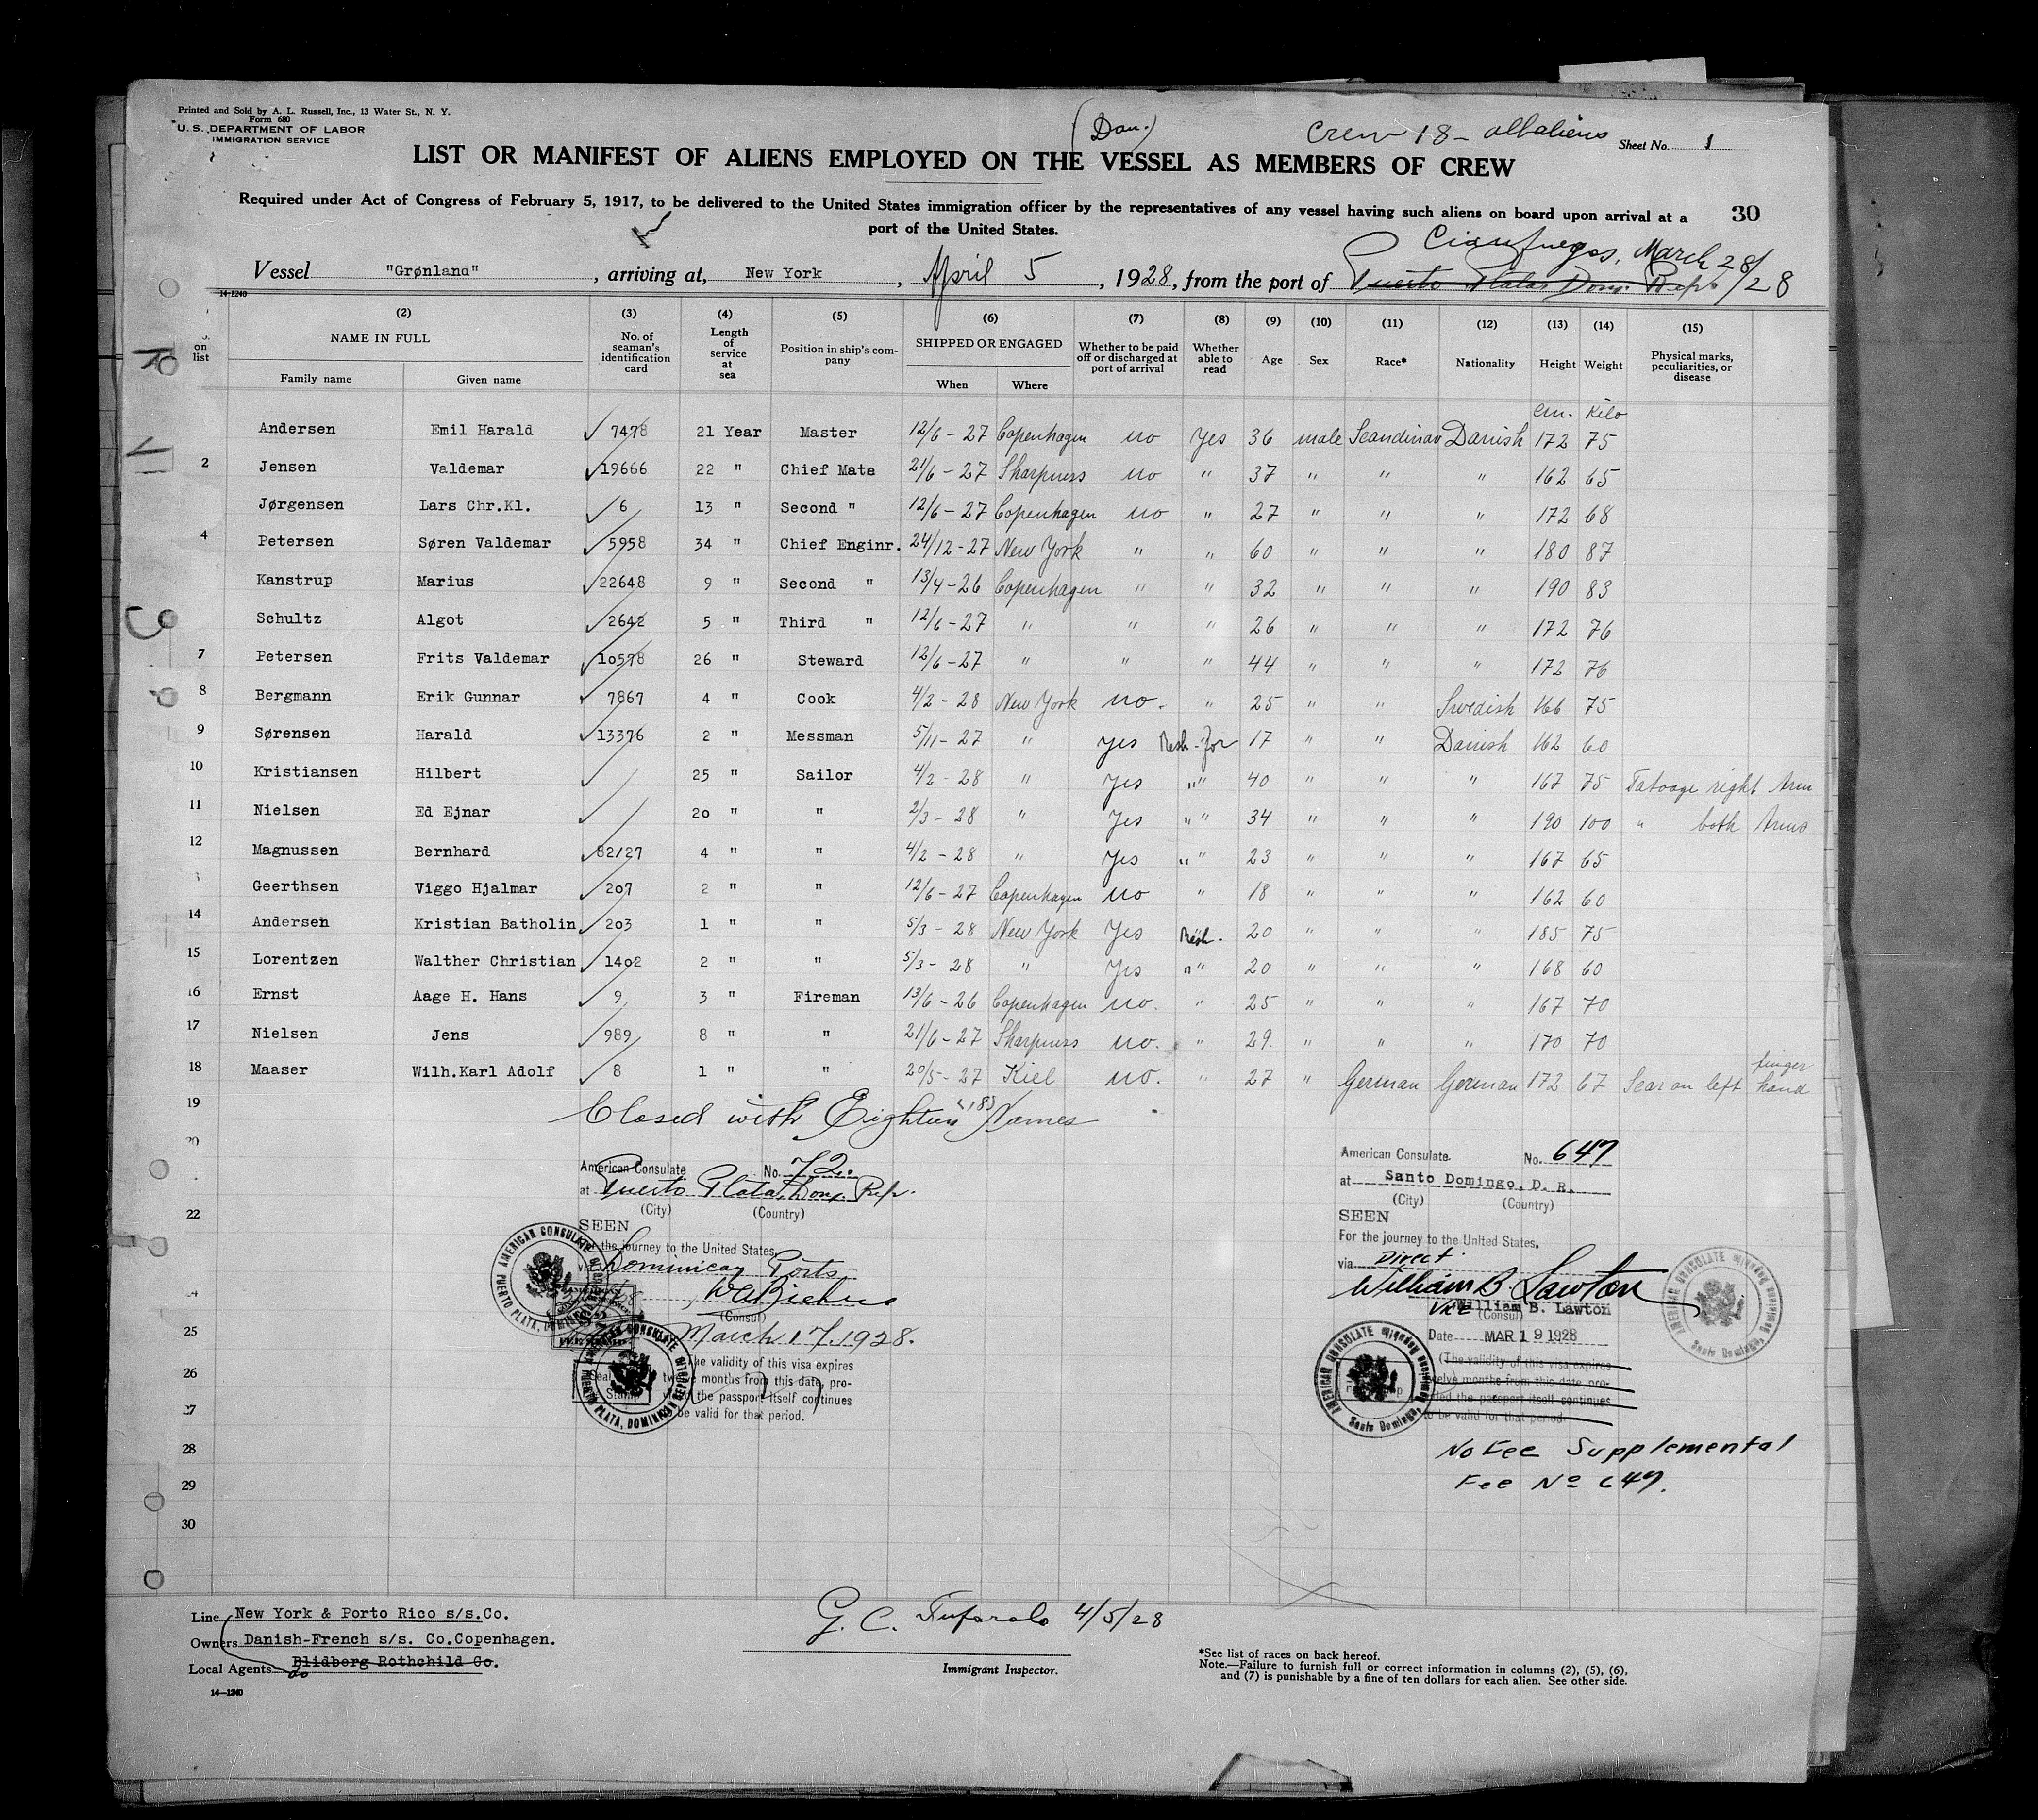 Printed and Sold by A. L. Russell, Inc., 13 Water St., N. Y.
Form 680
U. S. DEPARTMENT OF LABOR
IMMIGRATION SERVICE
(Dan.)
Crew 18 - all aliens
Sheet No. 1
LIST OR MANIFEST OF ALIENS EMPLOYED ON THE VESSEL AS MEMBERS OF CREW
Required under Act of Congress of February 5, 1917, to be delivered to the United States immigration officer by the representatives of any vessel having such aliens on board upon arrival at a
port of the United States.
30
Cienfuegos, March 28/28
Vessel "Grønland", arriving at, New York, April 5, 1928, from the port of Puerto Plata, Dom. Rep.
14-1240
on list
(2) NAME IN FULL
Family name Given name
(3) No. of seaman's identification card
(4) Length of service at sea
(5) Position in ship's company
(6) SHIPPED OR ENGAGED
When Where
(7) Whether to be paid off or discharged at port of arrival
(8) Whether able to read
(9) Age
(10) Sex
(11) Race*
(12) Nationality
(13) Height
(14) Weight
(15) Physical marks, peculiarities, or disease
cm. Kilo
Andersen Emil Harald 7478 21 Year Master 12/6 - 27 Copenhagen no Yes 36 male Scandinav Danish 172 75
2 Jensen Valdemar 19666 22 " Chief Mate 21/6 - 27 Sharpness no " 37 " " " 162 65
Jørgensen Lars Chr.Kl. 6 13 " Second " 12/6 - 27 Copenhagen no " 27 " " " 172 68
4 Petersen Søren Valdemar 5958 34 " Chief Enginr. 24/12 - 27 New York " " 60 " " " 180 87
Kanstrup Marius 22648 9 " Second " 13/4 - 26 Copenhagen " " 32 " " " 190 83
Schultz Algot 2642 5 " Third " 12/6 - 27 " " " 26 " " " 172 76
7 Petersen Frits Valdemar 10578 26 " Steward 12/6 - 27 " " " 44 " " " 172 76
8 Bergmann Erik Gunnar 7867 4 " Cook 4/2 - 28 New York no. " 25 " " Swedish 166 75
9 Sørensen Harald 13376 2 " Messman 5/11 - 27 " yes 17 " " Danish 162 60
10 Kristiansen Hilbert 25 " Sailor 4/2 - 28 " Yes " " 40 " " " 167 75 Tatooge right Arm
11 Nielsen Ed Ejnar 20 " " 2/3 - 28 " Yes " " 34 " " " 190 100 " both Arms
12 Magnussen Bernhard 82127 4 " " 4/2 - 28 " Yes " " 23 " " " 167 65
Geerthsen Viggo Hjalmar 207 2 " " 12/6 - 27 Copenhagen no " 18 " " " 162 60
14 Andersen Kristian Batholin 203 1 " " 5/3 - 28 New York Yes 20 " " " 185 75
15 Lorentzen Walther Christian 1402 2 " " 5/3 - 28 " Yes " " 20 " " " 168 60
16 Ernst Aage H. Hans 9 3 " Fireman 13/6 - 26 Copenhagen no. " 25 " " " 167 70
17 Nielsen Jens 989 8 " " 21/6 - 27 Sharpness no. " 29 " " " 170 70
18 Maaser Wilh.Karl Adolf 8 1 " " 20/5 - 27 Kiel no. " 27 " German German 172 67 Scar on left hand finger
19
Closed with Eighteen (18) Names
20
22
25
26
27
28
29
30
American Consulate No. 72.
at Puerto Plata, Dom. Rep.
(City) (Country)
SEEN
For the journey to the United States,
via Dominican Ports
(Consul)
March 17, 1928.
The validity of this visa expires
twelve months from this date, pro-
vided the passport itself continues
to be valid for that period.
AMERICAN CONSULATE PUERTO PLATA, DOMINICAN REPUBLIC
AMERICAN CONSULATE PUERTO PLATA, DOMINICAN REPUBLIC
American Consulate No. 647
at Santo Domingo, D. R.
(City) (Country)
SEEN
For the journey to the United States,
via Direct.
William B. Lawton
Vice William B. Lawton
(Consul)
Date MAR 19 1928
(The validity of this visa expires
twelve months from this date, pro-
vided the passport itself continues
to be valid for that period.
AMERICAN CONSULATE Santo Domingo, Dominican Republic
AMERICAN CONSULATE Santo Domingo, Dominican Republic
No Fee Supplemental
Fee No 647.
Line New York & Porto Rico s/s.Co.
Owners Danish-French s/s. Co.Copenhagen.
Local Agents Blidberg Rothchild Co.
do
14-1240
G. C. 4/5/28
Immigrant Inspector.
*See list of races on back hereof.
Note.—Failure to furnish full or correct information in columns (2), (5), (6),
and (7) is punishable by a fine of ten dollars for each alien. See other side.